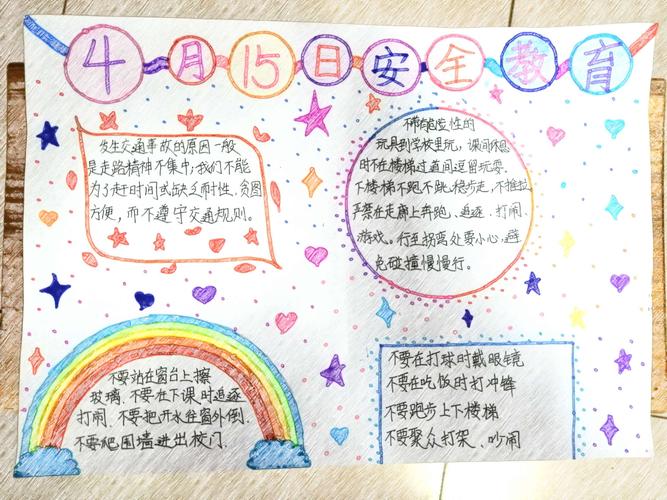 4月15日安全教育
发生交通事故的原因一般
是走路精神不集中;我们不能
为了赶时间或缺乏耐性、贪图
方便,而不遵守交通规则。
不带危险性的
玩具到学校里玩,课间休息
时不在楼梯过道间逗留玩耍
下楼梯不跑不跳,稳步走,不推拉
严禁在走廊上奔跑、追逐、打闹、
游戏。行至拐弯处要小心,避
免碰撞慢慢行。
不要站在窗台上擦
玻璃.不要在下课时追逐
打闹.不要把开水往窗外倒.
不要爬围墙进出校门.
不要在打球时戴眼镜
不要在吃饭时打冲锋
不要跑步上下楼梯
不要聚众打架、吵闹